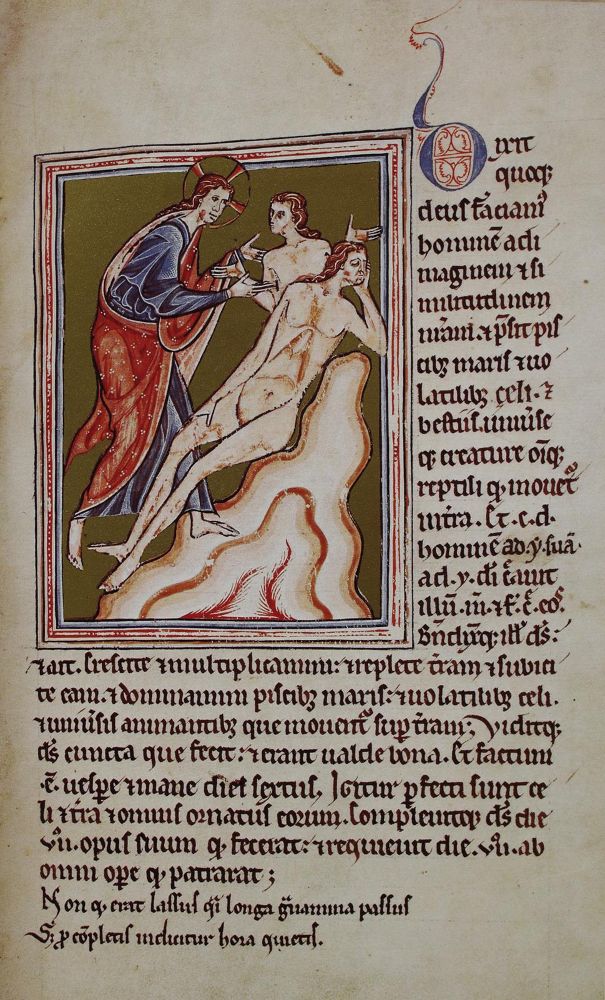 Dixit
quoq;
deus faciam᷒
homine᷒ ad i
maginem ⁊ si
militudinem
nr̄am ⁊ p̄sit pis
cib; maris ⁊ uo
latilib; celi. ⁊
bestiis uniu᷒se
q; creature om̄iq;
reptili q̄ mouet᷒
in t̄ra. Et. c. d.
homine᷒ ad. y. suā
ad. y. di c̄auit
illū. m̄. ⁊ f. c̄. eos.
Bn̄dixitq; ill᷒ ds̄.
⁊ ait. Crescite ⁊ multiplicamini. ⁊ replete t̄ram ⁊ subici
te eam. ⁊ dominamini piscib; maris. ⁊ uolatilib; celi.
⁊ uniu᷒sis animantib; que mouent᷒ sup t̄ram. Viditq;
ds̄ cuncta que fecit. ⁊ erant ualde bona. Et factum
ē. uesp̄e ⁊ mane dies sextus. Igitur p̄fecti sunt ce
li ⁊ t̄ra ⁊ omnis ornatus eorum. Compleuitq; ds̄ die
.vii. opus suum q̄ fecerat. ⁊ requieuit die .vii. ab
omni ope q̄ patrarat;
Non q̄ erat lassus q̄i longa g᷒uamina passus
S; p̄ co᷒pletis indicitur hora quietis.